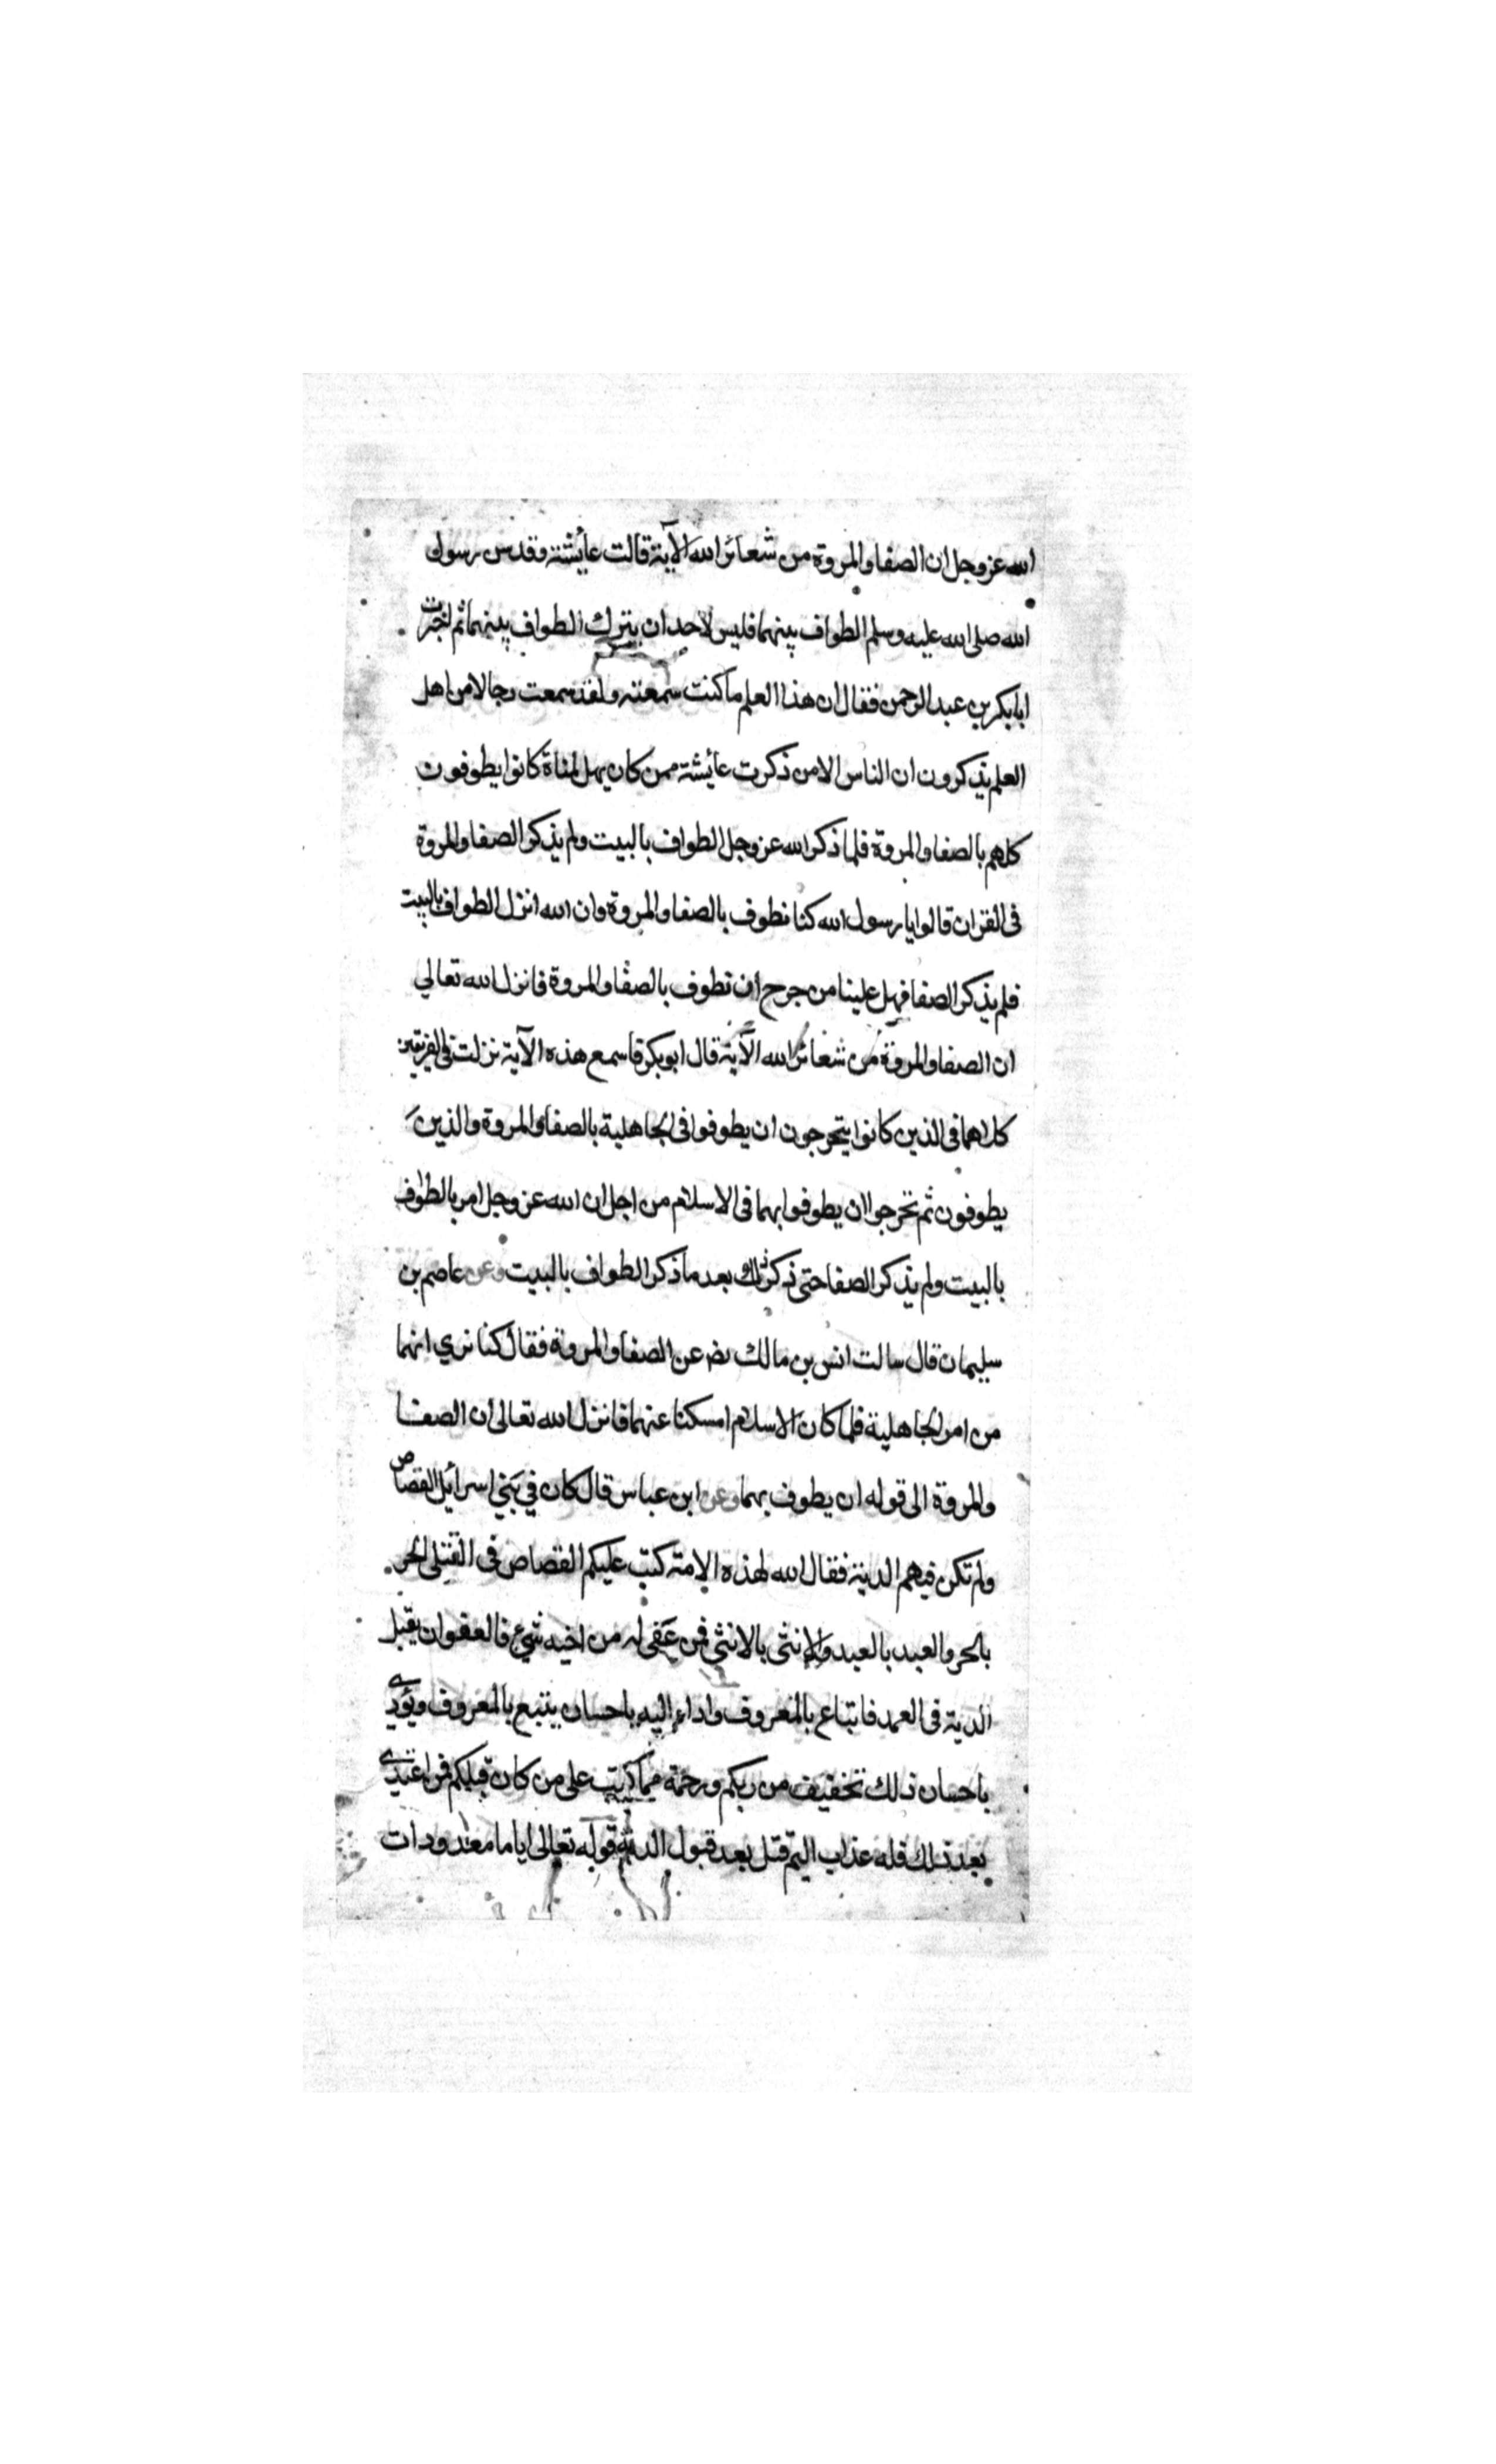 الله عز وجل ان الصفا والمروة من شعائر الله الآية قالت عائشة وقد سن رسول
الله صلى الله عليه وسلم الطواف بينهما فليس لاحد ان يترك الطواف بينهما ثم اخبرت
ابا بكر بن عبد الرحمن فقال ان هذا العلم ما كنت سمعته ولقد سمعت رجالا من اهل
العلم يذكرون ان الناس الا من ذكرت عائشة ممن كان يهل لمناة كانوا يطوفون
كلهم بالصفا والمروة فلما ذكر الله عز وجل الطواف بالبيت ولم يذكر الصفا والمروة
فى القران قالوا يا رسول الله كنا نطوف بالصفا والمروة وان الله انزل الطواف بالبيت
فلم يذكر الصفا فهل علينا من حرج ان نطوف بالصفا والمروة فانزل الله تعالي
ان الصفا والمروة من شعائر الله الآية قال ابو بكر فاسمع هذه الآية نزلت فى الفريقين
كلاهما فى الذين كانوا يتحرجون ان يطوفوا فى الجاهلية بالصفا والمروة والذين
يطوفون ثم تحرجوا ان يطوفوا بهما فى الاسلام من اجل ان الله عز وجل امر بالطواف
بالبيت ولم يذكر الصفا حتى ذكر ذلك بعد ما ذكر الطواف بالبيت وعن عاصم بن
سليمان قال سالت انس بن مالك رضـ عن الصفا والمروة فقال كنا نري انهما
من امر الجاهلية فلما كان الاسلام امسكنا عنهما فانزل الله تعالى ان الصفا
والمروة الى قوله ان يطوف بهما وعن ابن عباس قال كان في بني اسرائيل القصاص
ولم تكن فيهم الدية فقال الله لهذه الامة كتب عليكم القصاص فى القتلى الحر
بالحر والعبد بالعبد والانثى بالانثى فمن عفى له من اخيه شيء فالعفو ان يقبل
الدية فى العمد فاتباع بالمعروف واداء اليه باحسان يتبع بالمعروف ويؤدي
باحسان ذلك تخفيف من ربكم ورحمة مما كتب على من كان قبلكم فمن اعتدى
بعد ذلك فله عذاب اليم قتل بعد قبول الدية قوله تعالى اياما معدودات